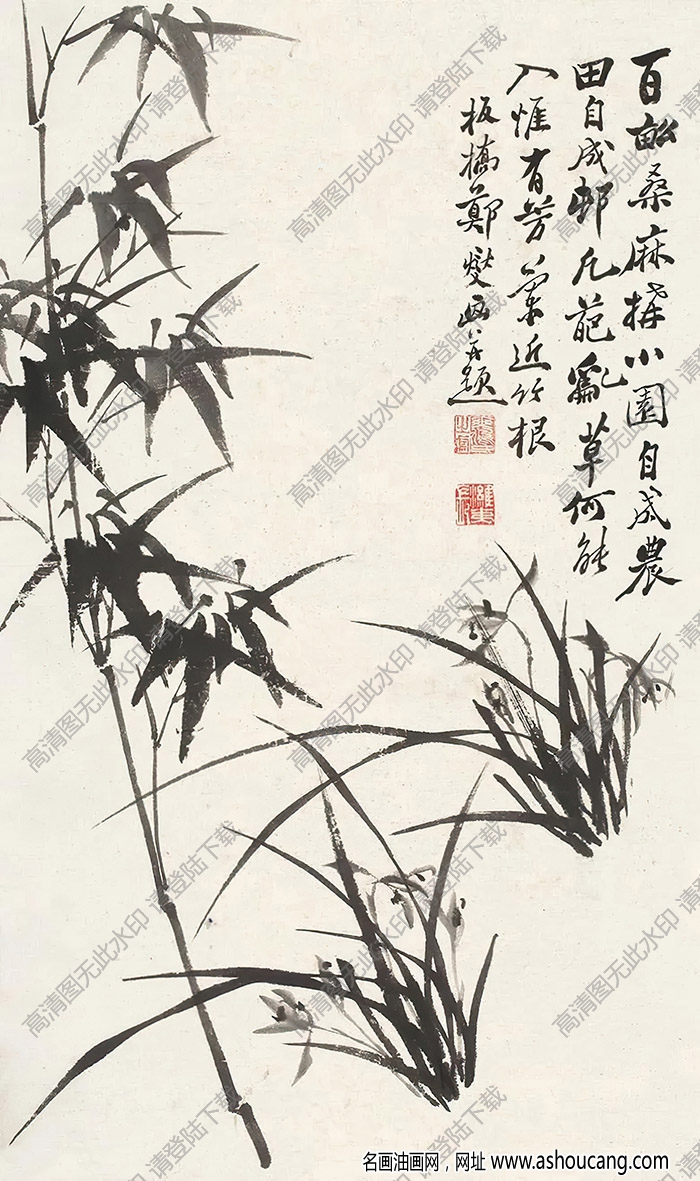 百畝桑麻接小園自成農
田自成邨凡葩亂草何能
入惟有芳蘭近竹根
板橋鄭燮畫并題
高清图无此水印 请登陆下载
名画油画网，网址 www.ashoucang.com